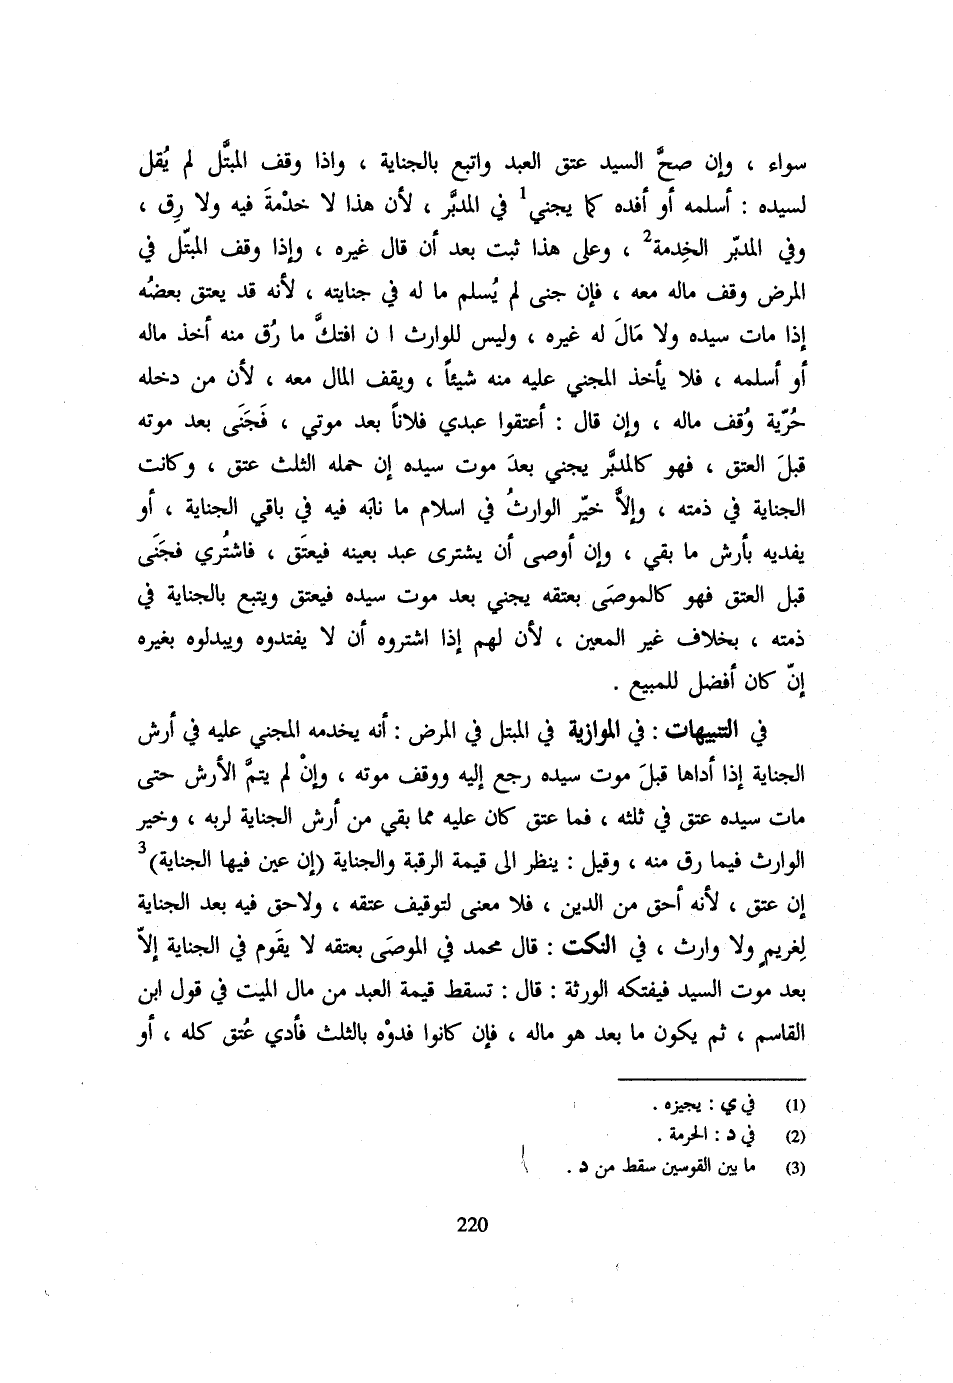 سواء ، وإن صحَّ السيد عتق العبد واتبع بالجناية ، واذا وقف المبتَّل لم يُقل
لسيده : أسلمه أو أفده كما يجني1 في المدبَّر ، لأن هذا لا خدْمةَ فيه ولا رِق ،
وفي المدبّر الخِدمة2 ، وعلى هذا ثبت بعد أن قال غيره ، وإذا وقف المبتّل في
المرض وقف ماله معه ، فإن جنى لم يُسلم ما له في جنايته ، لأنه قد يعتق بعضُه
إذا مات سيده ولا مَالَ له غيره ، وليس للوارث ا ن افتكَّ ما رُق منه أخذ ماله
أو أسلمه ، فلا يأخذ المجني عليه منه شيئاً ، ويقف المال معه ، لأن من دخله
حُرّية وُقف ماله ، وإن قال : أعتقوا عبدي فلاناً بعد موتي ، فَجَنَى بعد موته
قبلَ العتق ، فهو كالمدبَّر يجني بعدَ موت سيده إن حمله الثلث عتق ، وكانت
الجناية في ذمته ، وإلاَّ خيّر الوارثُ في اسلام ما نابَه فيه في باقي الجناية ، أو
يفديه بأرش ما بقي ، وإن أوصى أن يشترى عبد بعينه فيعتَق ، فاشتُري فجَنَى
قبل العتق فهو كالموصَى بعتقه يجني بعد موت سيده فيعتق ويتبع بالجناية في
ذمته ، بخلاف غير المعين ، لأن لهم إذا اشتروه أن لا يفتدوه ويبدلوه بغيره
إنّ كان أفضل للمبيع .
في التنبيهات : في الموازية في المبتل في المرض : أنه يخدمه المجني عليه في أرش
الجناية إذا أداها قبلَ موت سيده رجع إليه ووقف موته ، وإنْ لم يتمَّ الأرش حتى
مات سيده عتق في ثلثه ، فما عتق كان عليه مما بقي من أرش الجناية لربه ، وخير
الوارث فيما رق منه ، وقيل : ينظر الى قيمة الرقبة والجناية (إن عين فيها الجناية)3
إن عتق ، لأنه أحق من الدين ، فلا معنى لتوقيف عتقه ، ولاحق فيه بعد الجناية
لِغريمٍ ولا وارث ، في النكت : قال محمد في الموصَى بعتقه لا يقَوم في الجناية إلاّ
بعد موت السيد فيفتكه الورثة : قال : تسقط قيمة العبد من مال الميت في قول ابن
القاسم ، ثم يكون ما بعد هو ماله ، فإن كانوا فدوْه بالثلث فأدي عُتق كله ، أو
(1) في ي : يجيزه .
(2) في د : الحرمة .
(3) ما بين القوسين سقط من د .
220